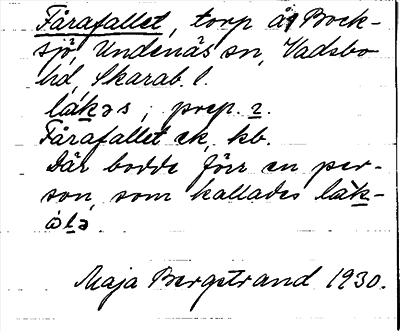 Fårafallet, torp å Bock-
sjö, Undenäs sn, Vadsbo
hd, Skarab. l.
lákəs; prep. 2.
Fårafallet ek, kb.
Där bodde förr en per-
son, som kallades låk-
ólə.
Maja Bergstrand 1930.